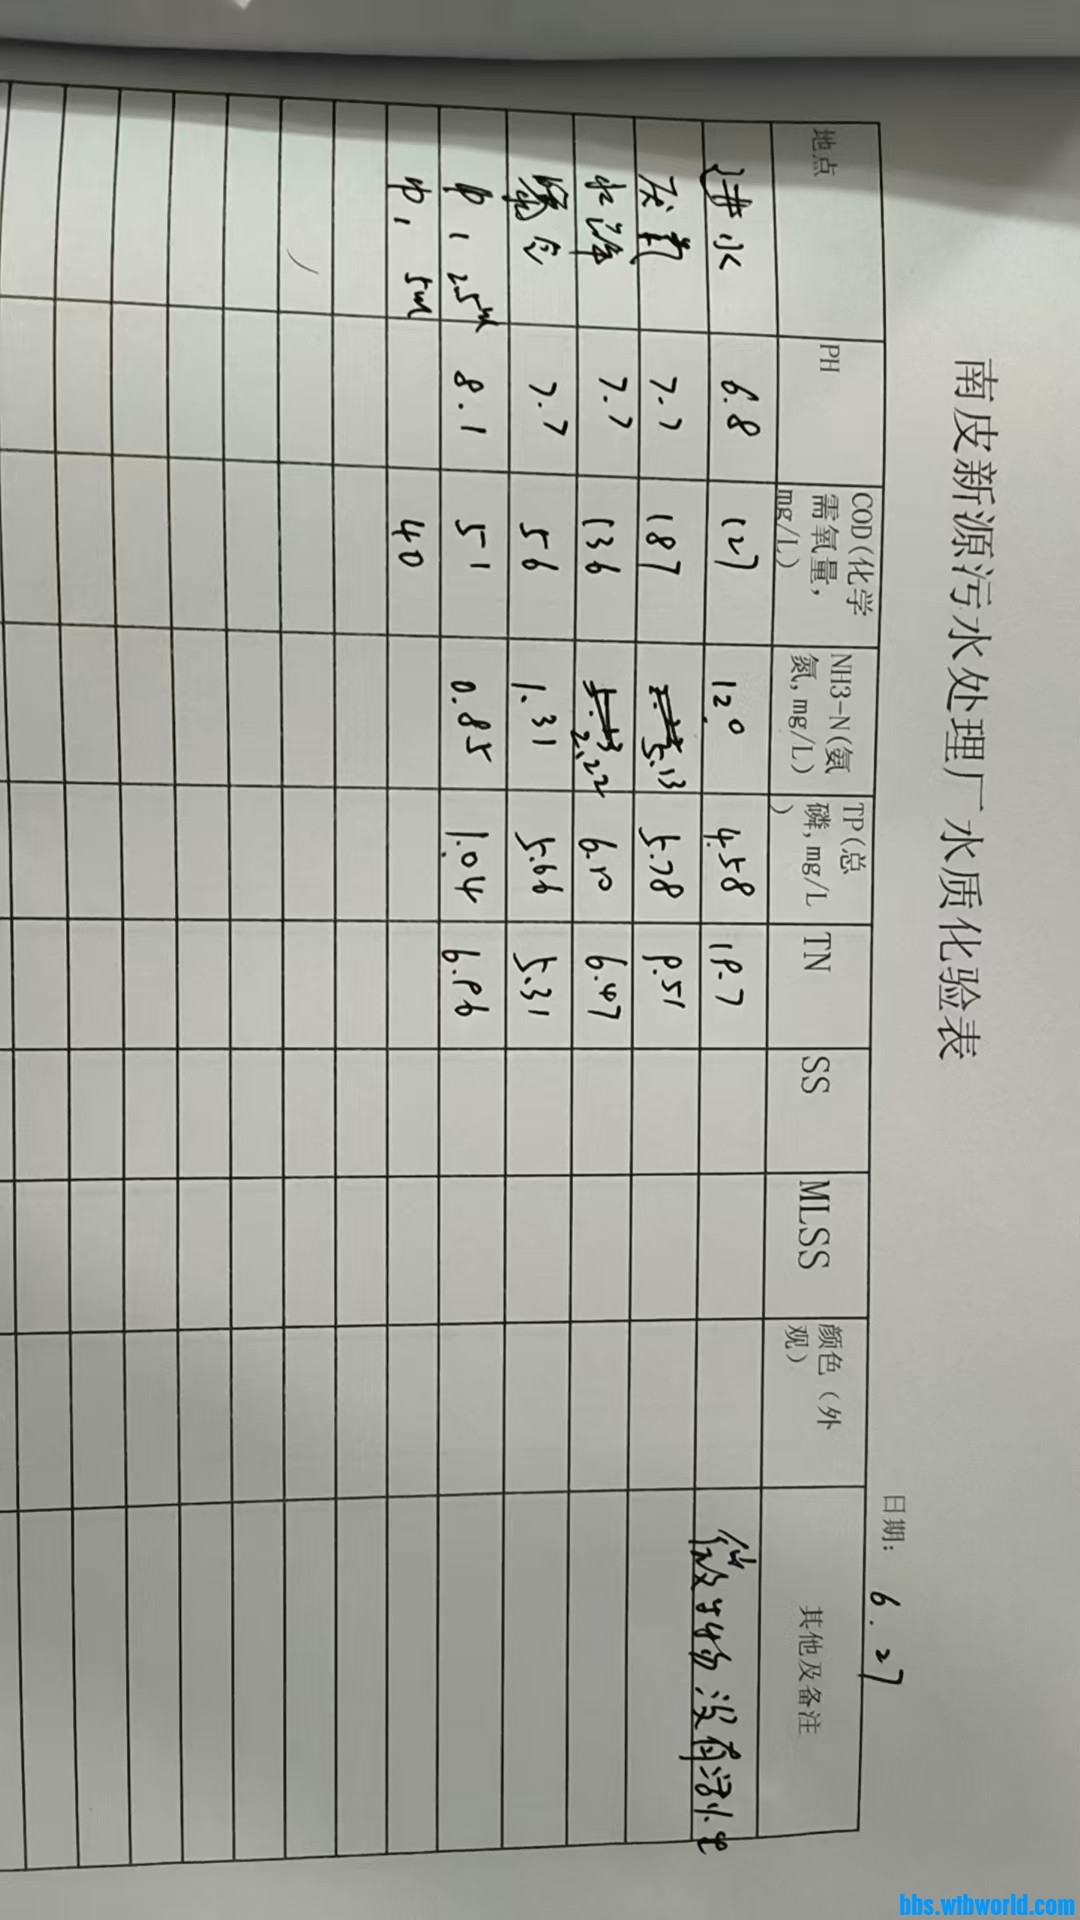 南皮新源污水处理厂水质化验表
日期: 6.27
地点 PH COD(化学需氧量,mg/L) NH3-N(氨氮,mg/L) TP(总磷,mg/L) TN SS MLSS 颜色(外观) 其他及备注
进水 6.8 127 12.0 4.58 19.7 微生物没有活性
厌氧 7.7 187 5.13 5.78 9.51
水解 7.7 136 2.22 6.10 6.47
7.7 56 1.31 5.66 5.31
中1 25m 8.1 51 0.85 1.04 6.96
中1 5m 40
bbs.wtbworld.com